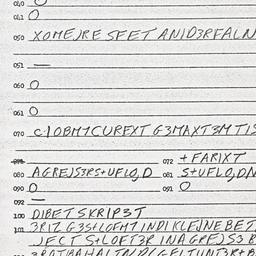 040 O
041 O
050 XOMEJRE SFEET ANID3RFALN
051 —
060 O
061 O
070 C10BM1CUREXT G3MAXT3M TIS
071 072 +FARIXT
080 AGREJS3RS+UFLO,D 081 S+UFLO,DN
090 O 091 O
092 —
100 DIBET SKRIP3T
101 3RIZ G3S+LOFM1 INDIKLEJNE BET
JFCT S+LOFT3R INAGREJS3 B